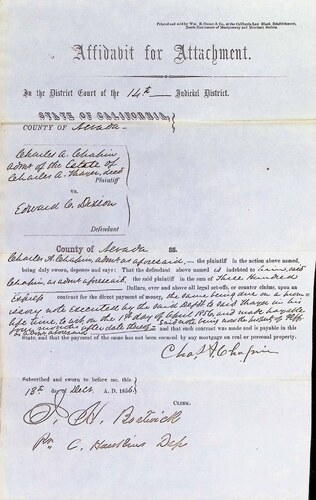 Printed and sold by Wm. B. Cooke & Co., at the California Law Blank Establishment,
North-East corner of Montgomery and Merchant Streets.
Affidavit for Attachment.
In the District Court of the 14th Judicial District.
STATE OF CALIFORNIA,
COUNTY OF Nevada
Charles A. Chapin
admr of the Estate of
Charles A. Thayer, decd
Plaintiff
vs.
Edward C. Dixson
Defendant
County of Nevada ss.
Charles A. Chapin, admr as aforesaid, the plaintiff in the action above named,
being duly sworn, deposes and says: That the defendant above named is indebted to him, said
Chapin, as admr aforesaid, the said plaintiff in the sum of Three Hundred
Dollars, over and above all legal set-offs, or counter claims, upon an
express contract for the direct payment of money, the same being due on a prom-
issory note executed by the said Deft to said Thayer in his
life time, to wit, on the 1st day of April 1856 and made payable
four months after date thereof said note being now the property of Plff
as admr aforesaid and that such contract was made and is payable in this
State, and that the payment of the same has not been secured by any mortgage on real or personal property.
Chas A. Chapin
Subscribed and sworn to before me, this
18th day of Decr A. D. 1856
CLERK.
J. H. Bostwick
Per C. Hawkins Dep